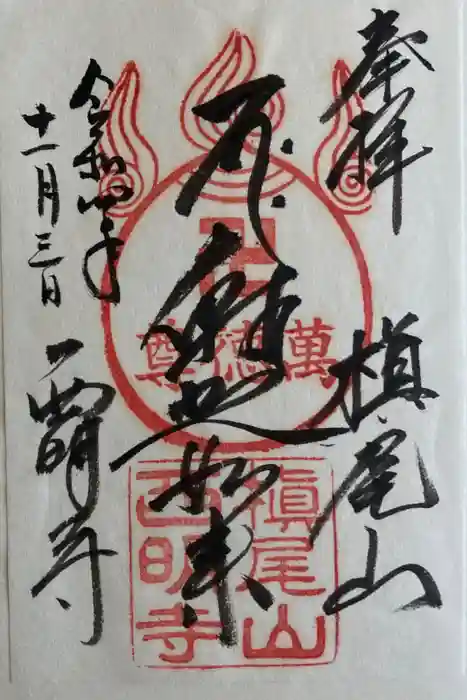 奉拝
槇尾山
薬師如来
令和四年
十一月三日
西明寺
卍
萬徳尊
槇尾山
西明寺